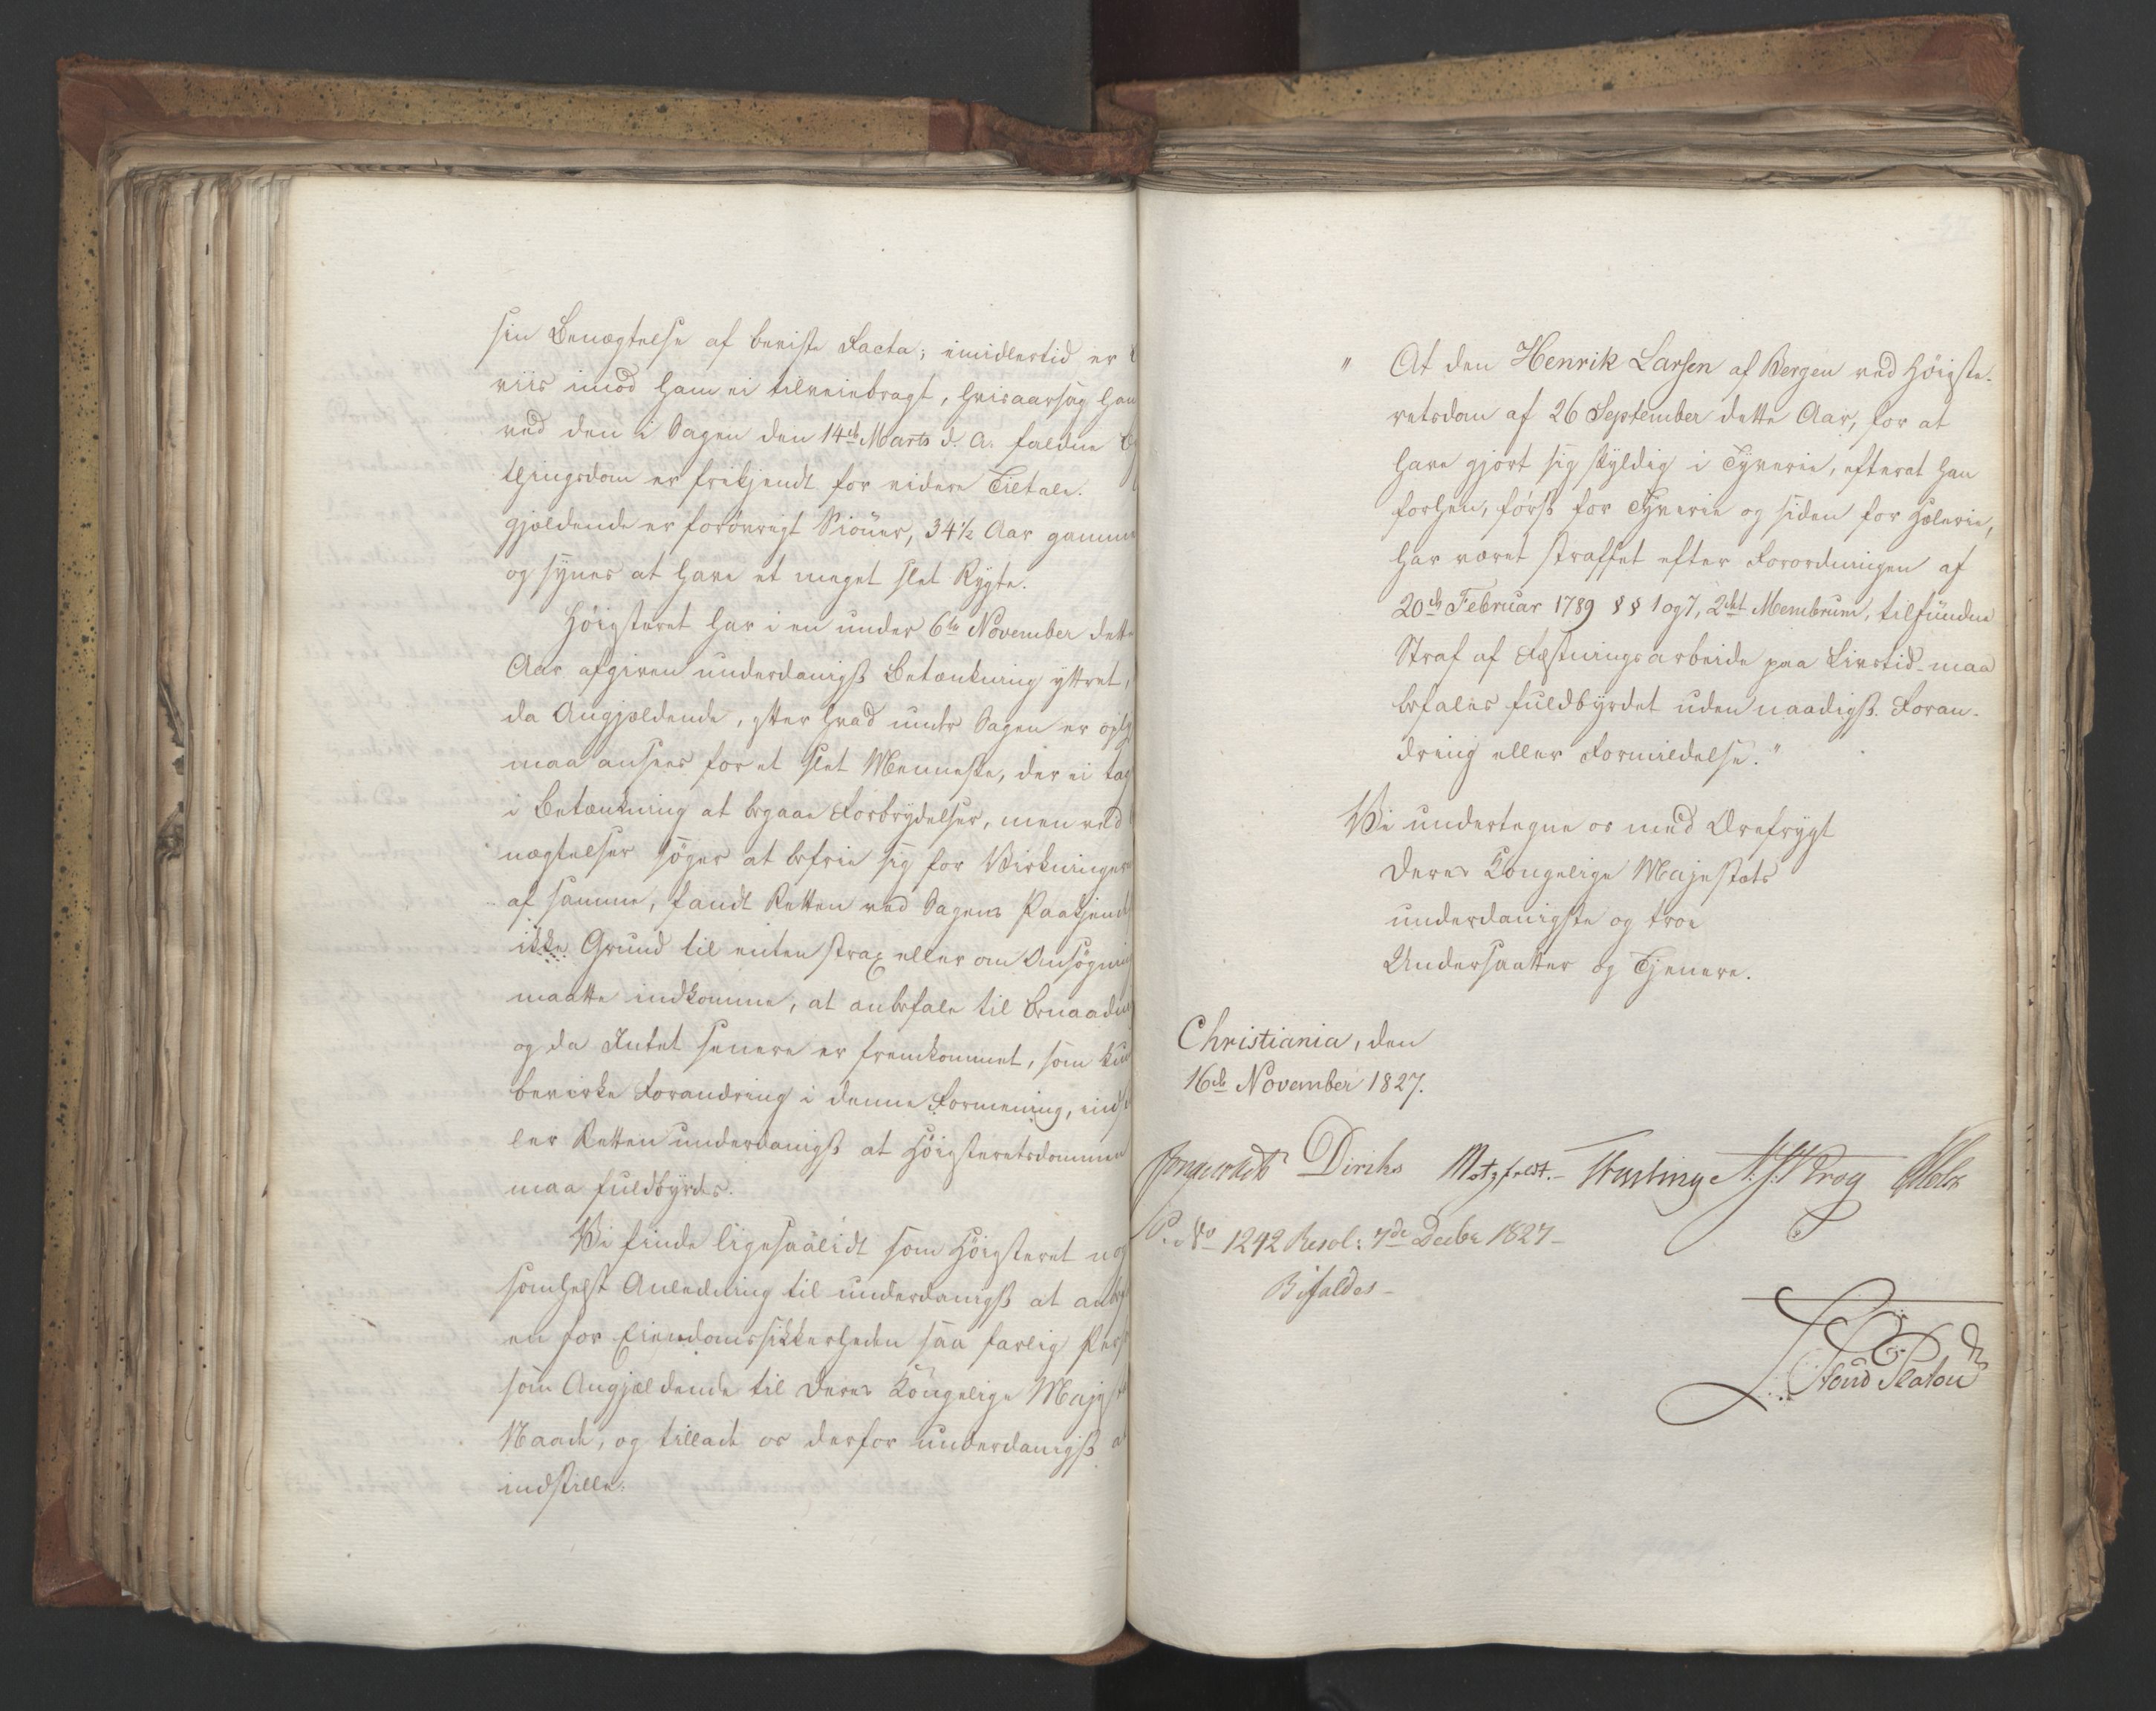 sin Benægtelse af beviste Facta; imidlertid er
viis imod ham ei tilveiebragt, hvisaarsag han
ved den i Sagen den 14de Marts d. A. faldne
thingsdom er frikjendt for videre Tiltale.
gjældende er forøvrigt Niöner, 34½ Aar gamme
og synes at have et meget slet Rygte.
Höigsteret har i en under 6te November dette
Aar afgiven underdanigst Betænkning yttret,
da Angjældende, efter hvad under Sagen er oply
maa ansees for et slet Menneske, der ei tag
i Betænkning at begaae Forbrydelser, men ved
nægtelser söger at befrie sig for Virkninger
af samme, fandt Retten ved Sagens Paakjend
ikke Grund til enten strax eller om Ansögning
maatte indkomme, at anbefale til Benaadn
og da Intet senere er fremkommet, som kun
bevirke Forandring i denne Formening, indst
ler Retten underdanigst at Höigsteretsdommen
maa fuldbyrdes.
Vi finde ligesaalidt som Höigsteret nog
somhelst Anledning til underdanigst at anbef
en for Eiendomssikkerheden saa farlig Pers
som Angjældende til Deres Kongelige Majestæ
Naade, og tillade os derfor underdanigst a
indstille:
" At den Henrik Larsen af Bergen ved Höigste-
retsdom af 26 September dette Aar, for at
have gjort sig skyldig i Tyverie, efterat han
forhen, först for Tyverie og siden for Hælerie,
har været straffet efter Forordningen af
20de Februar 1789 §§ 1 og 7, 2det Membrum, tilfunden
Straf af Fæstningsarbeide paa Livstid maa
befales fuldbyrdet uden naadigst Foran-
dring eller Formildelse."
Vi undertegne os med Ærefrygt
Deres Kongelige Majestæts
underdanigste og troe
Undersaatter og Tjenere.
Christiania, den
16de November 1827.
Diriks Motzfeldt. Krog Holst
P. No 1242 Resol: 7de Decbr 1827-
Bifaldes-
Stoud Platou